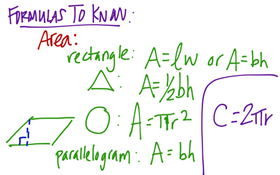 FORMULAS TO KNOW:
Area:
rectangle: A = lw or A = bh
△: A = ½bh
○: A = πr²
parallelogram: A = bh
C = 2πr